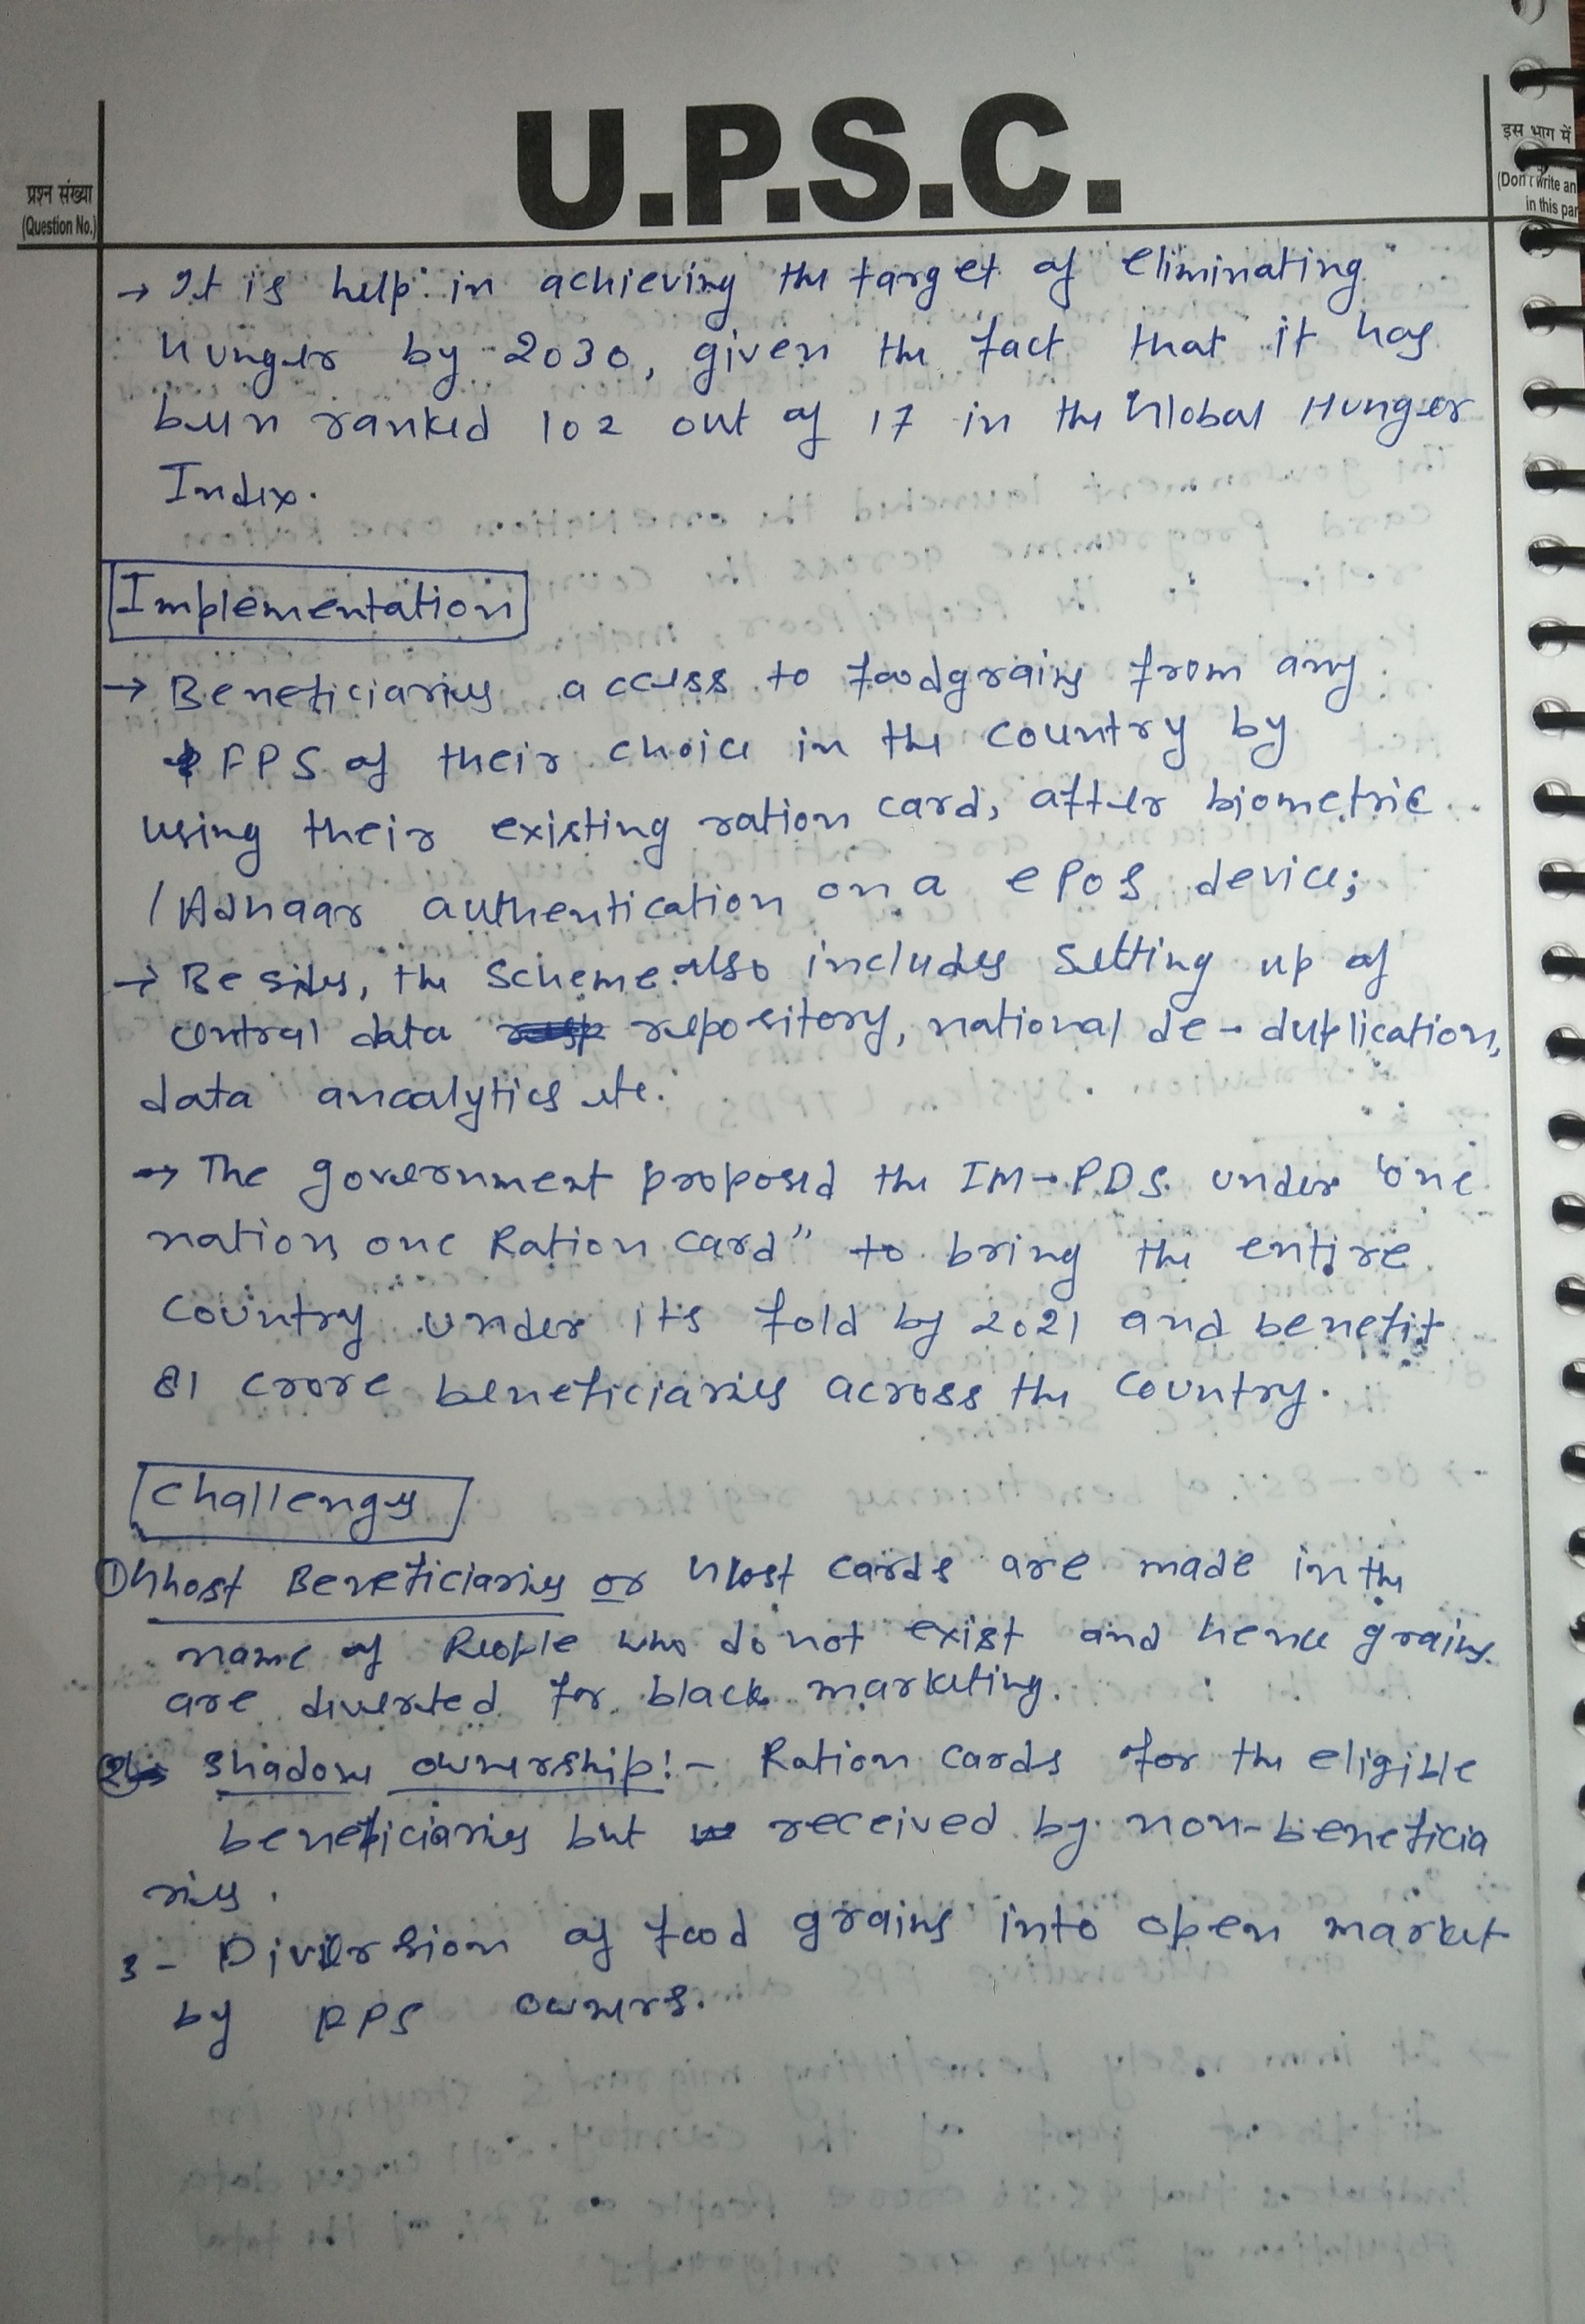 U.P.S.C.
प्रश्न संख्या
(Question No.)
इस भाग में
(Don't write an
in this par
→ It is help in achieving the target of eliminating
hunger by 2030, given the fact that it has
been ranked 102 out of 17 in the Global Hunger
Index.
Implementation
→ Beneficiaries access to foodgrains from any
FPS of their choice in the country by
using their existing ration card, after biometric
/Adhaar authentication on a ePoS device;
→ Besides, the Scheme also includes Setting up of
central data repository, national de-duplication,
data anaalytics etc.
→ The government proposed the IM-PDS under "one
nation one Ration card" to bring the entire
country under its fold by 2021 and benefit
81 crore beneficiaries across the country.
Challenges
① Ghost Beneficiaries or Ghost cards are made in the
name of People who do not exist and hence grains
are diverted for black marketing.
② Shadow ownership:- Ration cards for the eligible
beneficiaries but received by non-beneficia
ries.
3- Diversion of food grains into open market
by PPS owners.